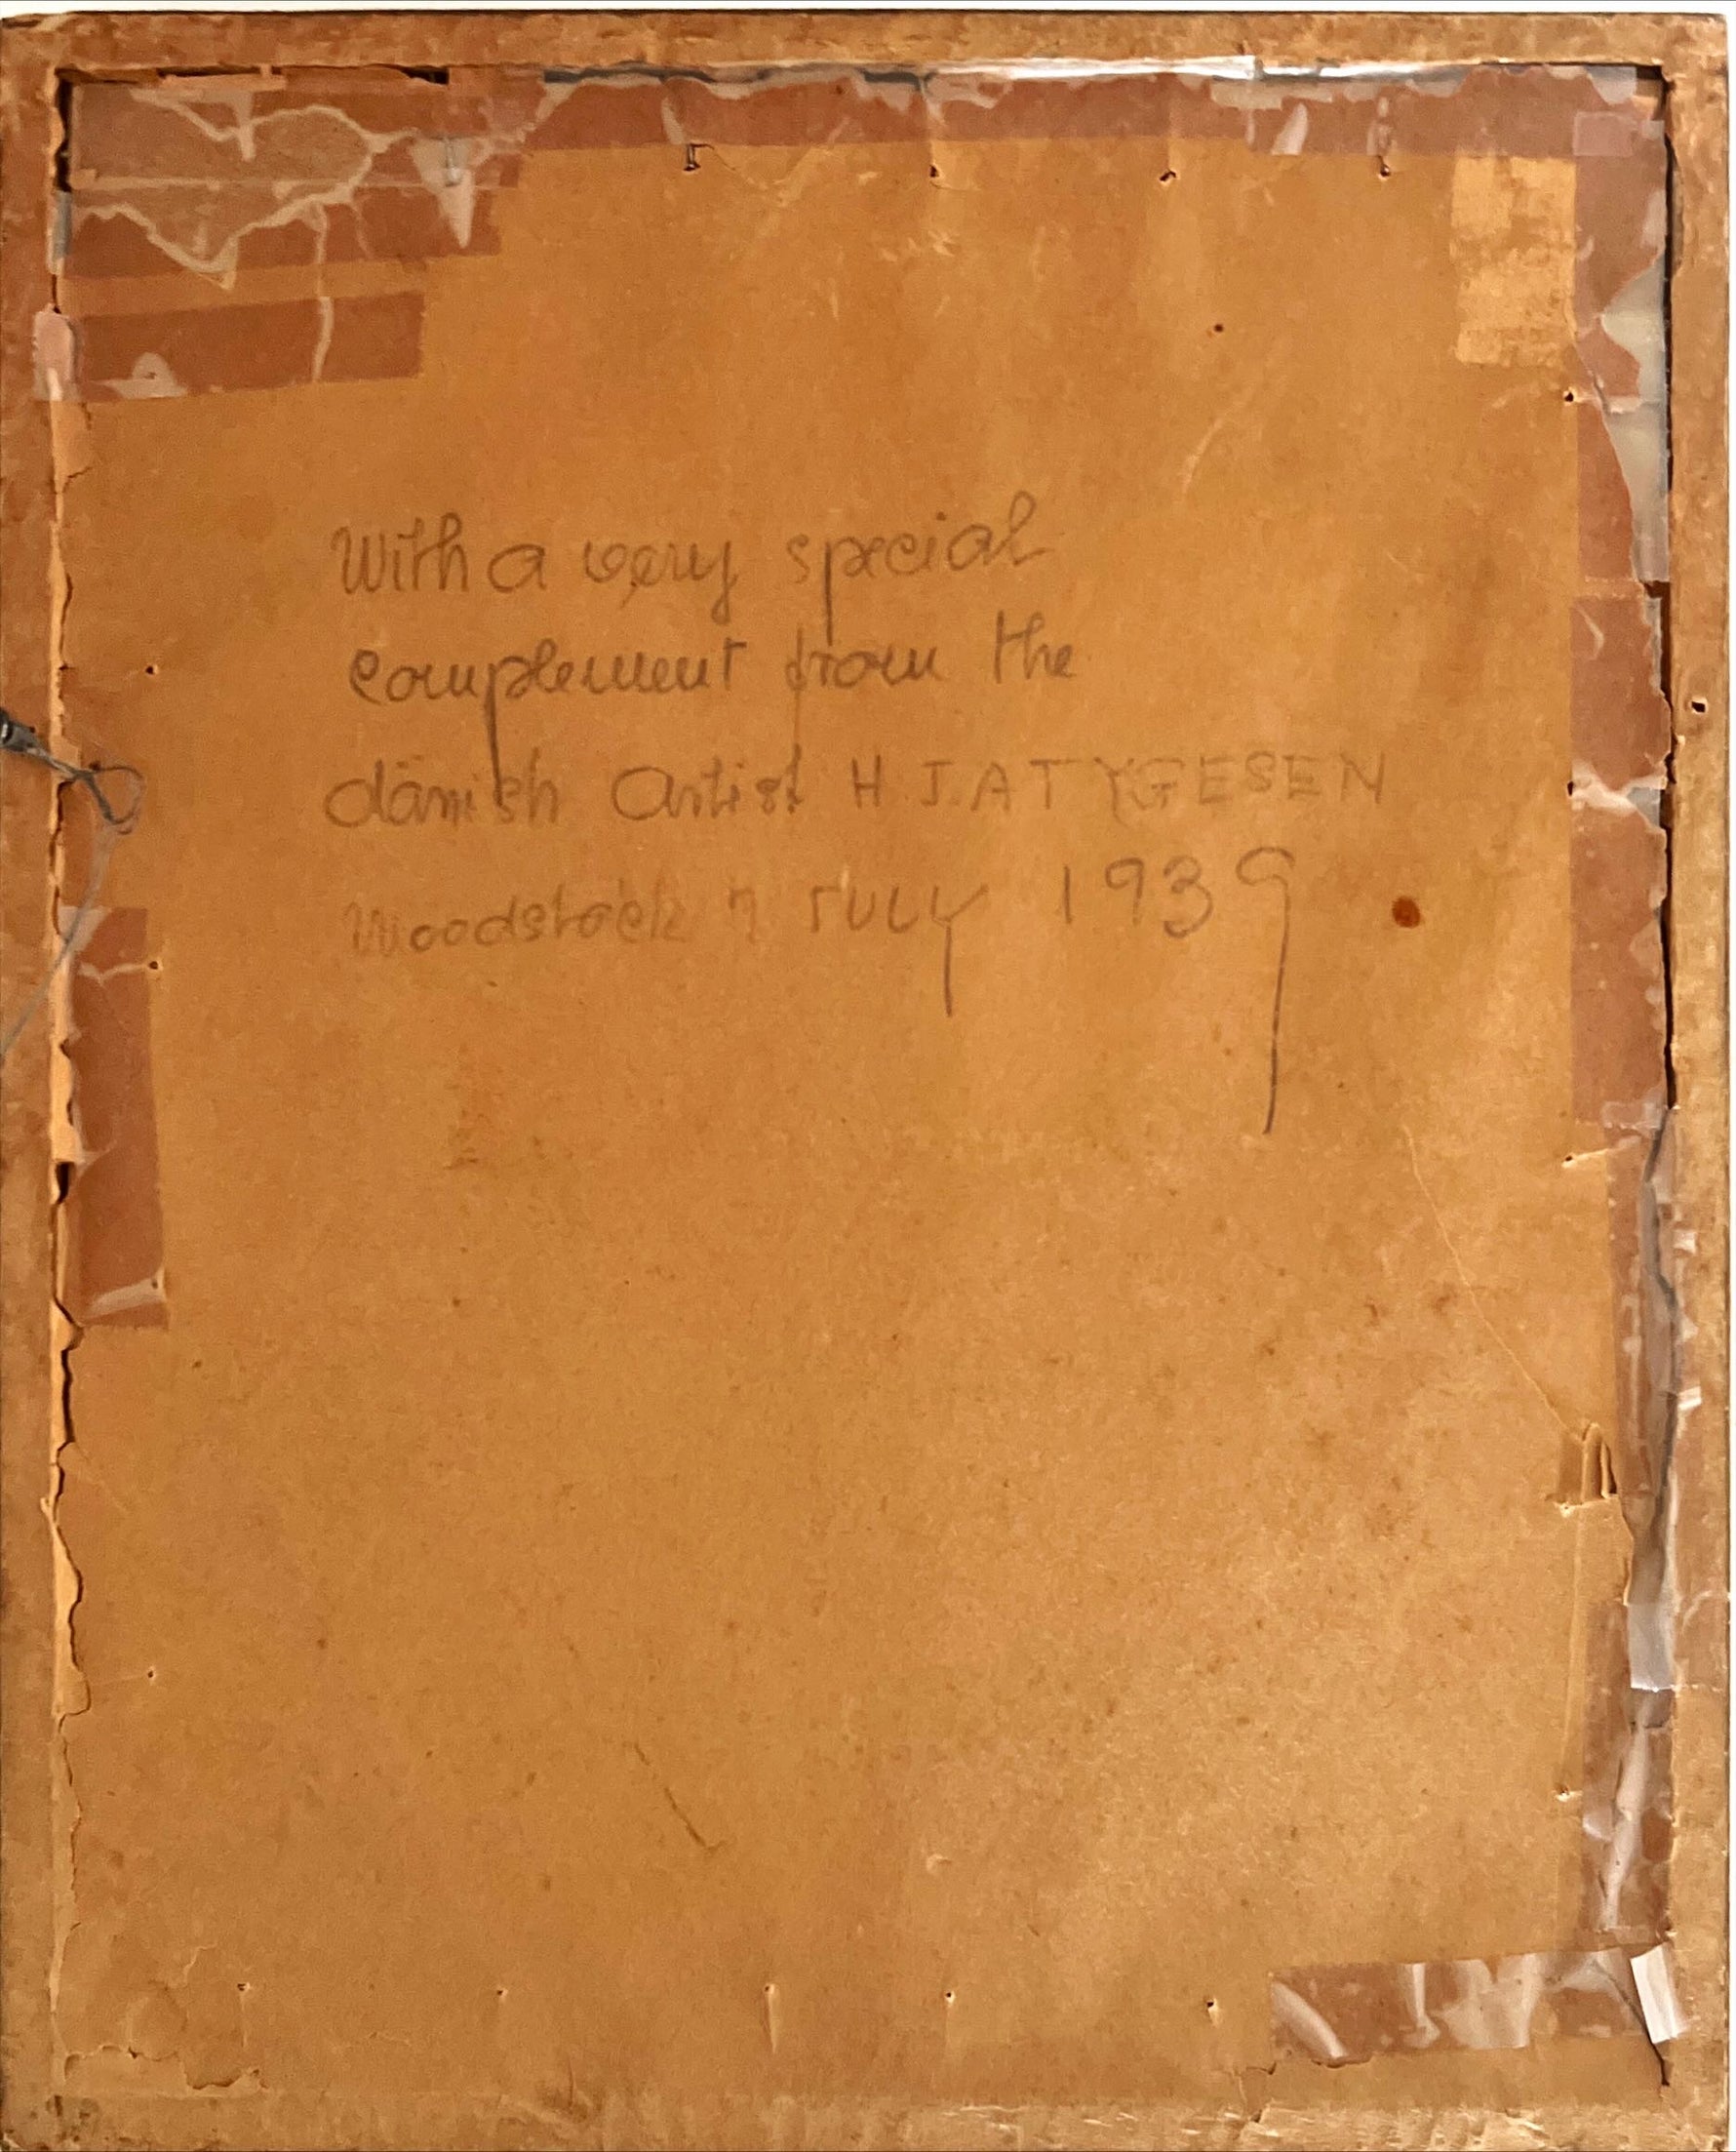 With a very special
complement from the
dänish Artist H J. A TYGESEN
Woodstock 7 JULY 1939